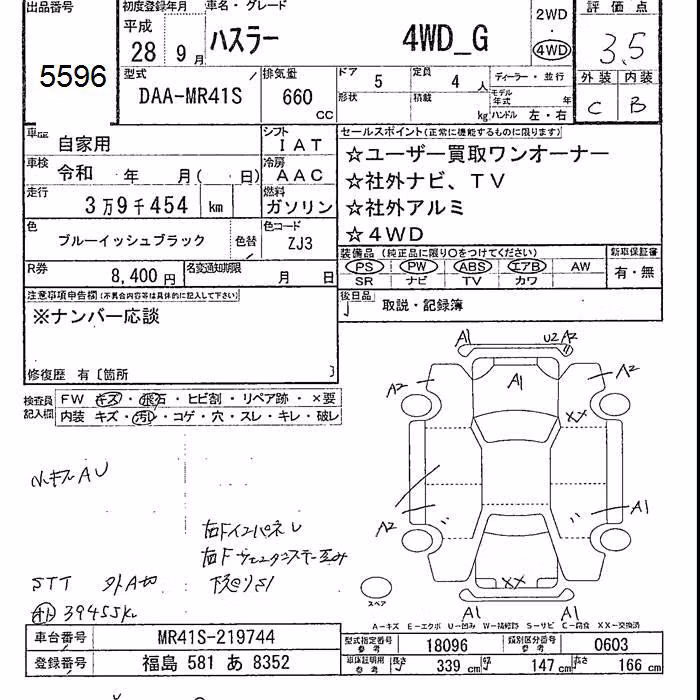 出品番号
5596
初度登録年月
平成
28 9月
車名・グレード
ハスラー 4WD_G
2WD
・
4WD
評価点
3.5
外装 内装
C B
型式
DAA-MR41S
排気量
660 cc
ドア 5
定員 4 人
形状
積載 kg
ディーラー・並行
モデル年式 年
ハンドル 左・右
車歴 自家用
車検 令和 年 月( 日)
走行 3万9千454 km
色 ブルーイッシュブラック 色替
シフト IAT
冷房 AAC
燃料 ガソリン
色コード ZJ3
R券 8,400 円
名変通知期限 月 日
セールスポイント(正常に機能するものに限ります)
☆ユーザー買取ワンオーナー
☆社外ナビ、TV
☆社外アルミ
☆4WD
装備品 (純正品に限り○をつけてください)
PS PW ABS エアB AW
SR ナビ TV カワ
新車保証書
有・無
後日品 取説・記録簿
注意事項申告欄(不具合内容等は具体的に記入して下さい)
※ナンバー応談
修復歴 有〔箇所 〕
検査員記入欄
FW キズ・飛石・ヒビ割・リペア跡・×要
内装 キズ・汚レ・コゲ・穴・スレ・キレ・破レ
小キズAU
右Fインパネ
STT
39455k
A1 U2 A2
A2 A1 A2
XX
A2 A1
XX
A1 A1
スペア
A-キズ E-エクボ U-凹み W-補修跡 S-サビ C-腐食 XX-交換済
車台番号 MR41S-219744
登録番号 福島 581 あ 8352
型式指定番号 参考 18096
類別区分番号 参考 0603
車体証明用 参考
長さ 339 cm
幅 147 cm
高さ 166 cm